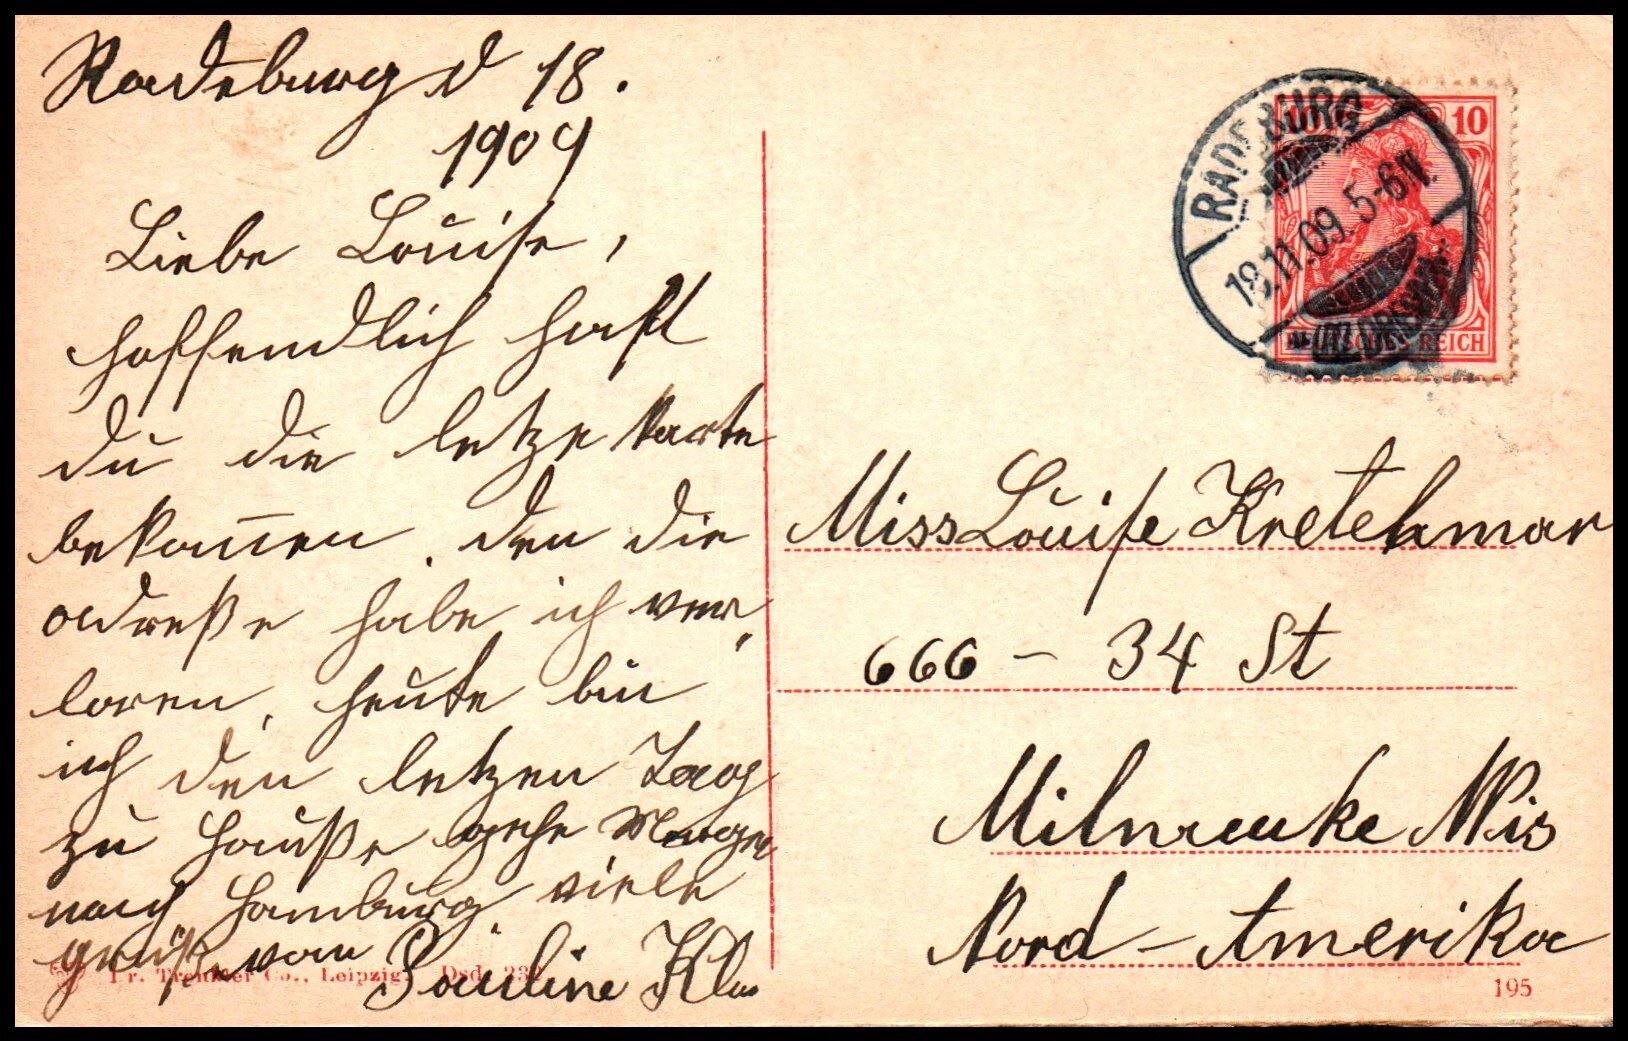 Radeburg d 18.
1909
Liebe Louise,
hoffendlich hast
du die letze Karte
bekommen. den die
adreße habe ich ver„
loren, heute bin
ich den letzen Tag
zu Hauße gehe Morgen
nach Hamburg. viele
grüße von Pauline Kl
Fr. Trenkler Co., Leipzig. Dsd. 232
RADEBURG
18.11.09. 5-6N.
10
DEUTSCHES REICH
Miss Louise Kretehmar
666 – 34 St
Milwauke Wis
Nord – Amerika
195